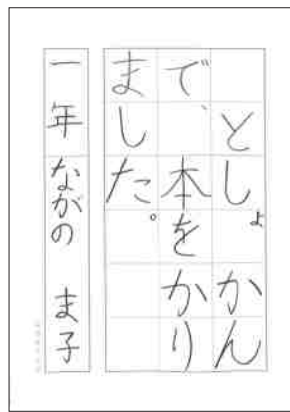 としょかん
で、本をかり
ました。
一年 ながの ま子